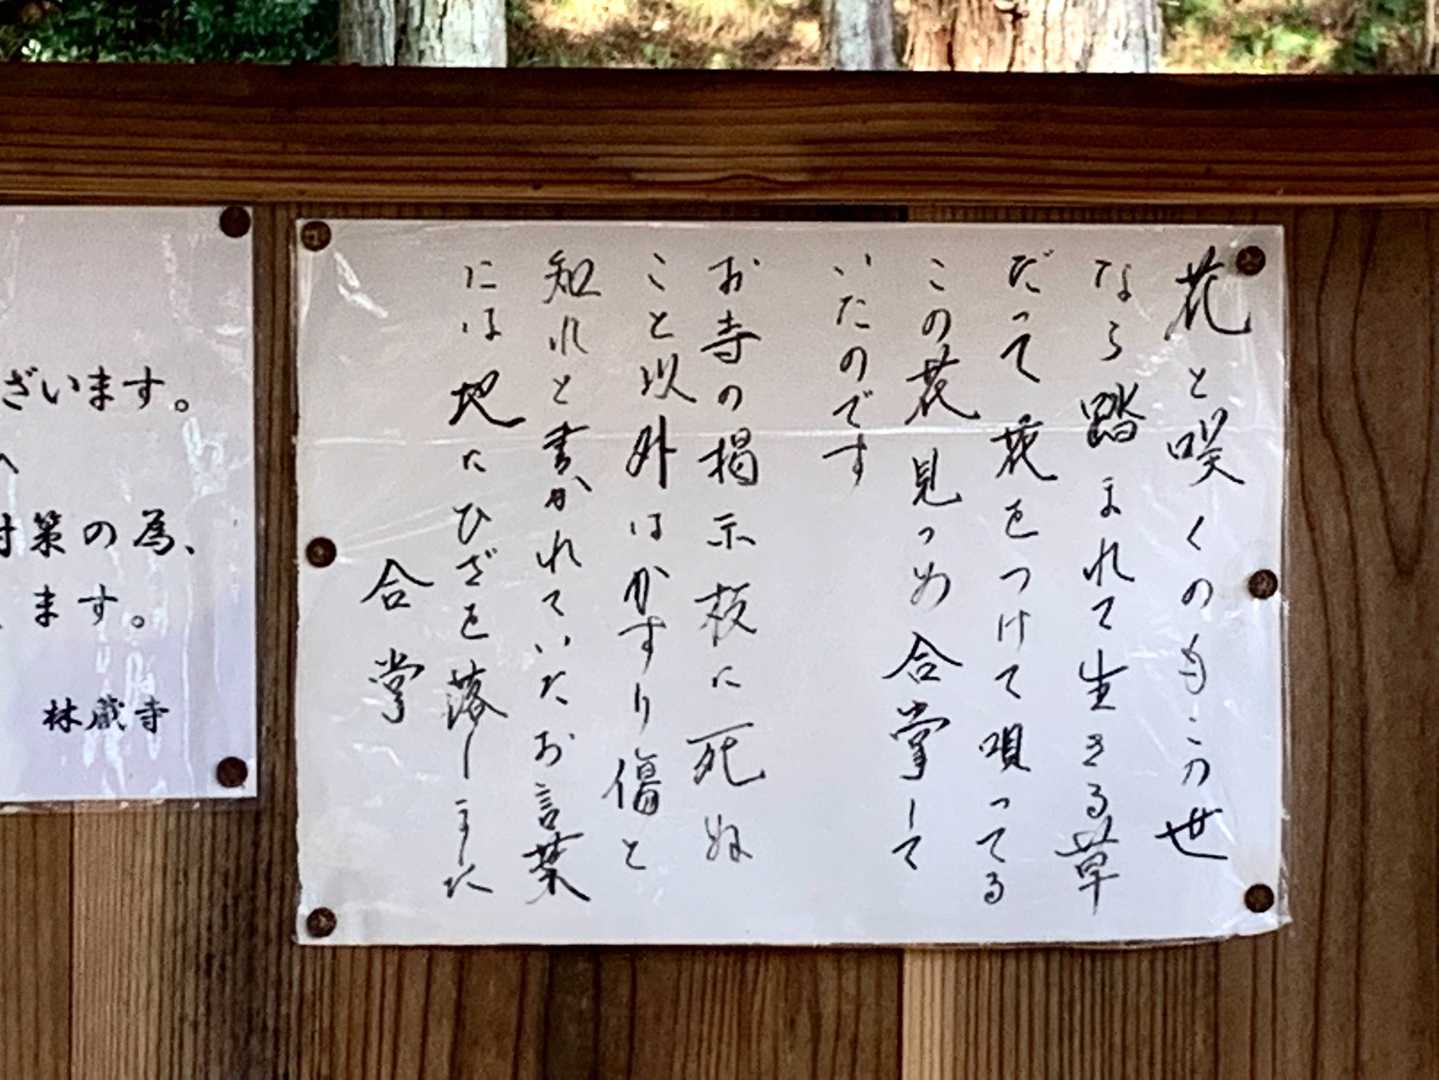 花と咲くのもこの世
なら踏まれて生きる草
だって花をつけて唄ってる
この花見つめ合掌して
いたのです
お寺の掲示板に死ぬ
こと以外はかすり傷と
知れと書かれていたお言葉
には地にひざを落しました
合掌
ざいます。
へ
対策の為、
ます。
林蔵寺